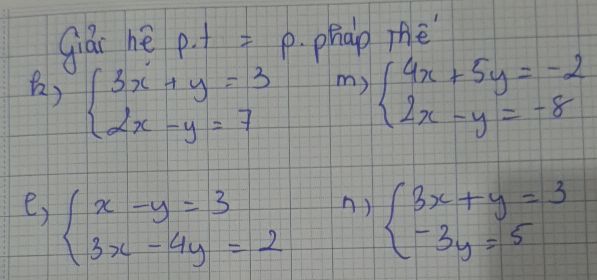 Giải hệ p.t = p.pháp Thế
k, { 3x + y = 3
2x - y = 7
m, { 4x + 5y = -2
2x - y = -8
l, { x - y = 3
3x - 4y = 2
n, { 3x + y = 3
-3y = 5